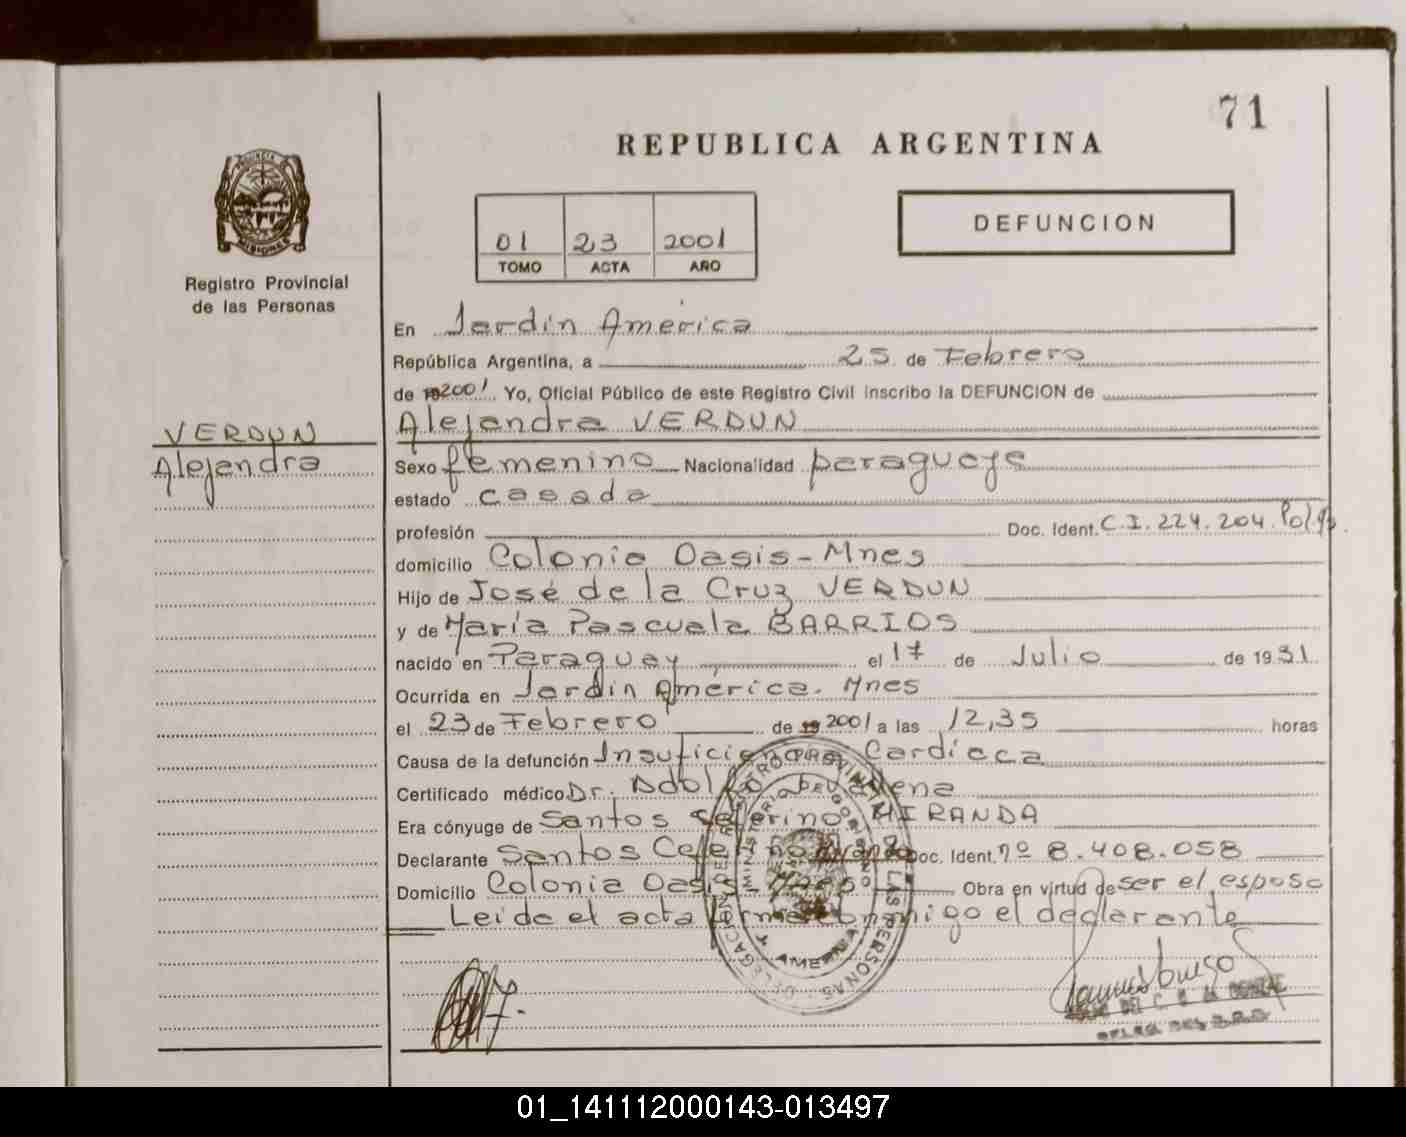 71
REPUBLICA ARGENTINA
PROVINCIA DE
MISIONES
Registro Provincial
de las Personas
01 23 2001
TOMO ACTA AÑO
DEFUNCION
En Jardín América
República Argentina, a 25 de Febrero
de 2001 Yo, Oficial Público de este Registro Civil inscribo la DEFUNCION de
VERDUN
Alejandra
Alejandra VERDUN
Sexo femenino Nacionalidad paraguaya
estado casada
profesión Doc. Ident. C.I. 224.204.
domicilio Colonia Oasis - Mnes
Hijo de José de la Cruz VERDUN
y de María Pascuala BARRIOS
nacido en Paraguay el 17 de Julio de 1931
Ocurrida en Jardín América. Mnes
el 23 de Febrero de 2001 a las 12,35 horas
Causa de la defunción Insuficiencia Cardíaca
Certificado médico Dr. Adolfo
Era cónyuge de Santos Seferino MIRANDA
Declarante Santos Ceferino Doc. Ident. nº 8.408.058
Domicilio Colonia Oasis - Mnes Obra en virtud de ser el esposo
Leída el acta firma conmigo el declarante
01_141112000143-013497